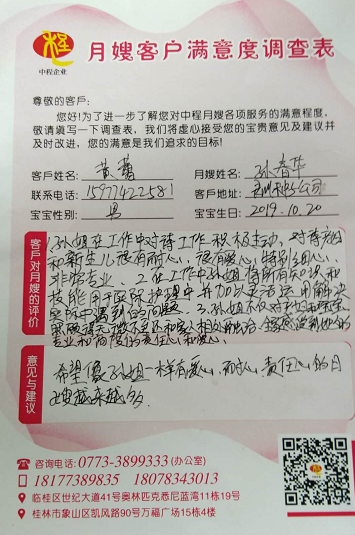 程
中程企业
月嫂客户满意度调查表
尊敬的客户：
您好!为了进一步了解您对中程月嫂各项服务的满意程度，
敬请填写一下调查表，我们将虚心接受您的宝贵意见及建议并
及时改进，您的满意是我们追求的目标!
客户姓名: 黄 月嫂姓名: 孙春华
联系电话: 15977422581 客户地址: 公司
宝宝性别: 男 宝宝生日: 2019.10.20
客户对月嫂的评价
1.孙姐在工作中对待工作积极主动，对待产妇
和新生儿很有耐心，很有爱心，特别细心，
非常专业、2.在工作中孙姐将所有知识和
技能用于实际护理中并加以灵活运用解决
实际中遇到的问题。3.孙姐不仅对
专业和高度的责任心和爱心。
意见与建议
希望像孙姐一样有爱心，耐心，责任心的月
嫂越来越多.
咨询电话: 0773-3899333 (办公室)
18177389835 18078343013
临桂区世纪大道41号奥林匹克悉尼蓝湾11栋19号
桂林市象山区凯风路90号万福广场15栋4楼